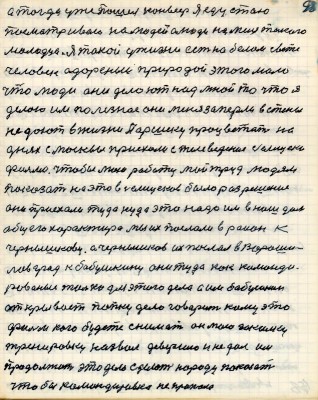 98
а тогда уже пошел конвер Я еду стою
посматриваю на людей а люди на меня такого
молодца. Я такой у жизни есть на белом свете
человек одореный природой этого мало
что люди они делоют надмной то что я
делою им полезное они меня заперли в стены
не дают в жизни Паршеку процветать на
днях с москвы приехали с телеведения
фильм. чтобы мою работу мой труд людям
показать на это в было разрешение
они приехали туда куда это надо им в наш дом
а мы их послали в район к
чернышикову. а чернышиков их послал в Вороши-
ловград к бабушкину они туда как командиро-
рованые только для этого дела а им бабушкин
открывает папку дело говорит кому это
фильм кого будете снимать он мою закалку
тренировку назвал и не дал им
продолжить это дело сделать народу показать
что бы командировка не пропала